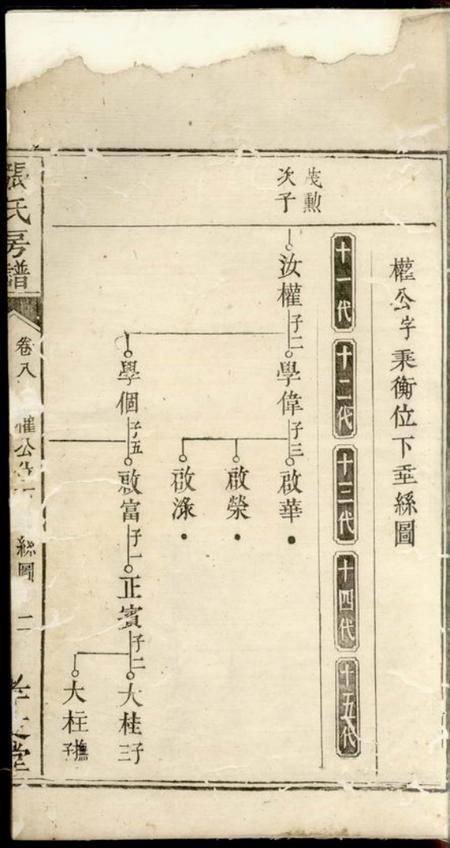 權公字乘衡位下垂絲圖
十一代
十二代
十三代
十四代
十五代
茂勲
次子
汝權
子二
學偉
子三
啟華
啟榮
啟湪
學個
子五
啟富
子一
正賓
子二
大桂
子三
大柱
子撫
張氏房譜
卷八
權公
絲圖
二
堂